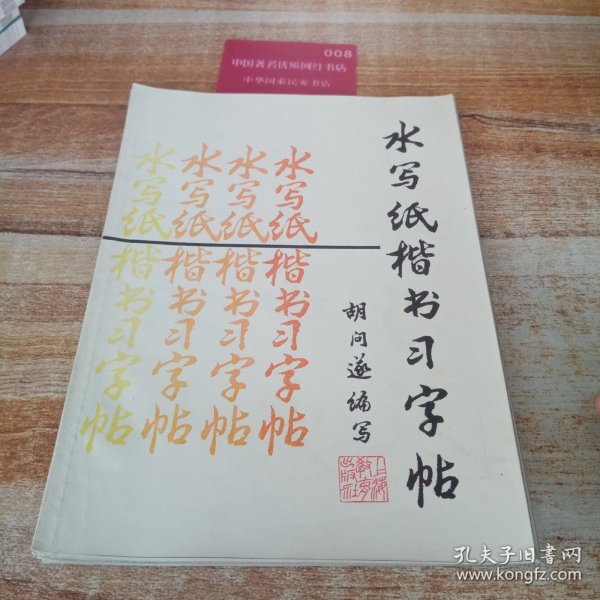 008
中国著名优质网红书店
中华国泰民安书店
水写纸楷书习字帖
胡问遂编写
上海教育出版社
水写纸楷书习字帖
水写纸楷书习字帖
水写纸楷书习字帖
水写纸楷书习字帖
孔夫子旧书网
www.kongfz.com